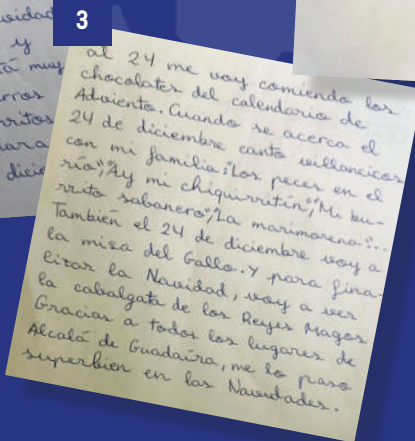 vidad
y
tá muy
rros
rritos
ara
dicie
3
al 24 me voy comiendo los
chocolates del calendario de
Adviento. Cuando se acerca el
24 de diciembre canto villancicos
con mi familia: "Los peces en el
río", "Ay mi chiquirritín", "Mi bu-
rrito sabanero", "La marimorena"...
También el 24 de diciembre voy a
la misa del Gallo. Y para fina-
lizar la Navidad, voy a ver
la cabalgata de los Reyes Magos
Gracias a todos los lugares de
Alcalá de Guadaíra, me lo paso
superbien en las Navidades.